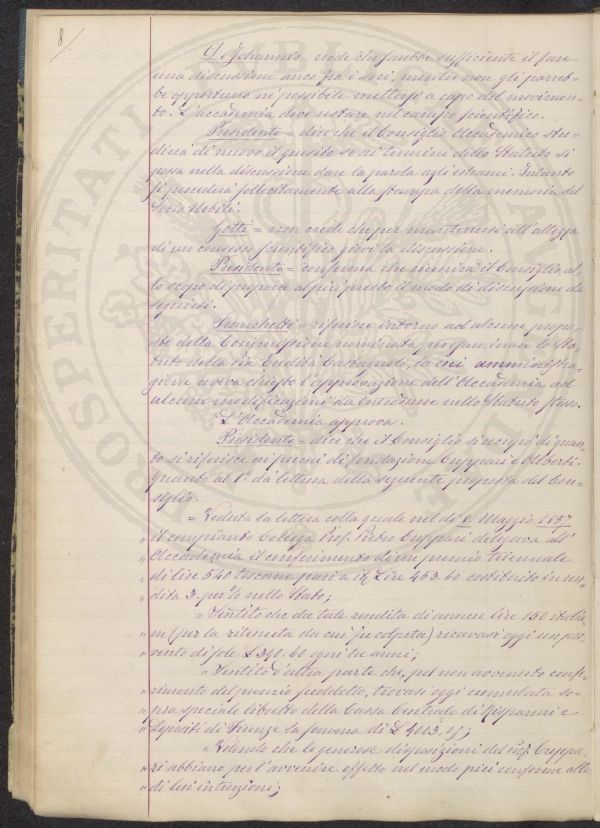 8
De Johannis = crede che sarebbe sufficiente il fare
una discussione anco fra i soci, mentre non gli parreb-
be opportuno nè possibile mettersi a capo del movimen-
to. L'accademia deve restare nel campo scientifico.
Presidente = dice che il Consiglio Accademico stu-
dierà di nuovo il quesito se ai termini dello Statuto si
possa nella discussione dare la parola agli estranei. Intanto
si procederà sollecitamente alla stampa della memoria del
Socio Nobili.
Gotti = non crede che per mantenersi all'altezza
di un consesso scientifico giovi la discussione.
Presidente = conferma che riunirà il Consiglio al-
lo scopo di proporre al più presto il modo di discussione da
seguirsi.
Franchetti = riferisce intorno ad alcune propo-
ste della Commissione nominata per esaminare lo Sta-
tuto della Pia Eredità Castagnoli, la cui amministra-
zione aveva chiesto l'approvazione dell'Accademia ad
alcune modificazioni da introdurre nello Statuto stesso.
L'Accademia approva.
Presidente = dice che il Consiglio si occupò di quan-
to si riferisce ai premi di fondazione Cuppari e Alberti.
Quanto al 1° dà lettura della seguente proposta del Con-
siglio.
= Veduta la lettera colla quale nel dì 8. Maggio 1857
" il compianto Collega Prof. Pietro Cuppari delegava all'
" Accademia il conferimento di un premio triennale
" di lire 540 toscane pari a it. Lire 453.60 costituito in ren-
" dita 3. per % nello Stato;
" Sentito che da tale rendita di annue lire 150 italia-
" ne (per la ritenuta da cui fu colpita) ricavasi oggi un pro-
" vento di sole £ 390.60 ogni tre anni;
" Sentito d'altra parte che, pel non avvenuto confe-
" rimento del premio suddetto, trovasi oggi cumulata so-
" pra speciale libretto della Cassa Centrale di Risparmi e
" Depositi di Firenze la somma di £ 2003.
" Volendo che le generose disposizioni del Prof. Cuppa-
" ri abbiano per l'avvenire effetto nel modo più conforme alle
" di lui intenzioni;
PROSPERITATI PUBLICAE AUGENDAE